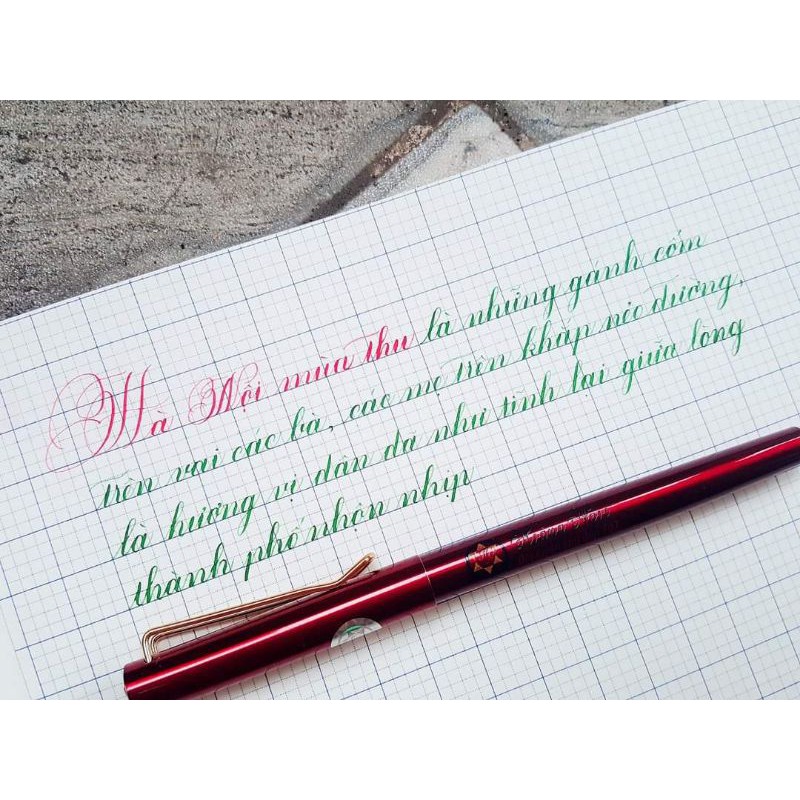 Hà Nội mùa thu là những gánh cốm
trên vai các bà, các mẹ trên khắp nẻo đường,
là hương vị dân dã như tĩnh lại giữa lòng
thành phố nhộn nhịp